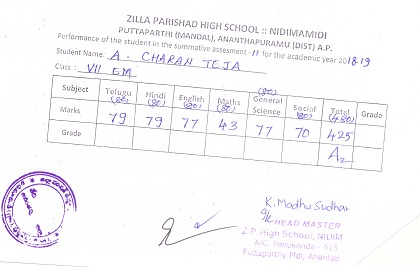 ZILLA PARISHAD HIGH SCHOOL :: NIDIMAMIDI
PUTTAPARTHI (MANDAL), ANANTHAPURAMU (DIST) A.P.
Performance of the student in the summative assesment -II for the academic year 2018-19
Student Name: A. CHARAN TEJA
Class : VII EM
Subject Telugu (80) Hindi (80) English (80) Maths (80) General Science (80) Social (80) Total (480) Grade
Marks 79 79 77 43 77 70 425
Grade A2
K. Madhu Sudhan
HEAD MASTER
Z.P. High School, NIDIM
A/C. Penukonda - 515
Puttaparthy Mdl, Anantap